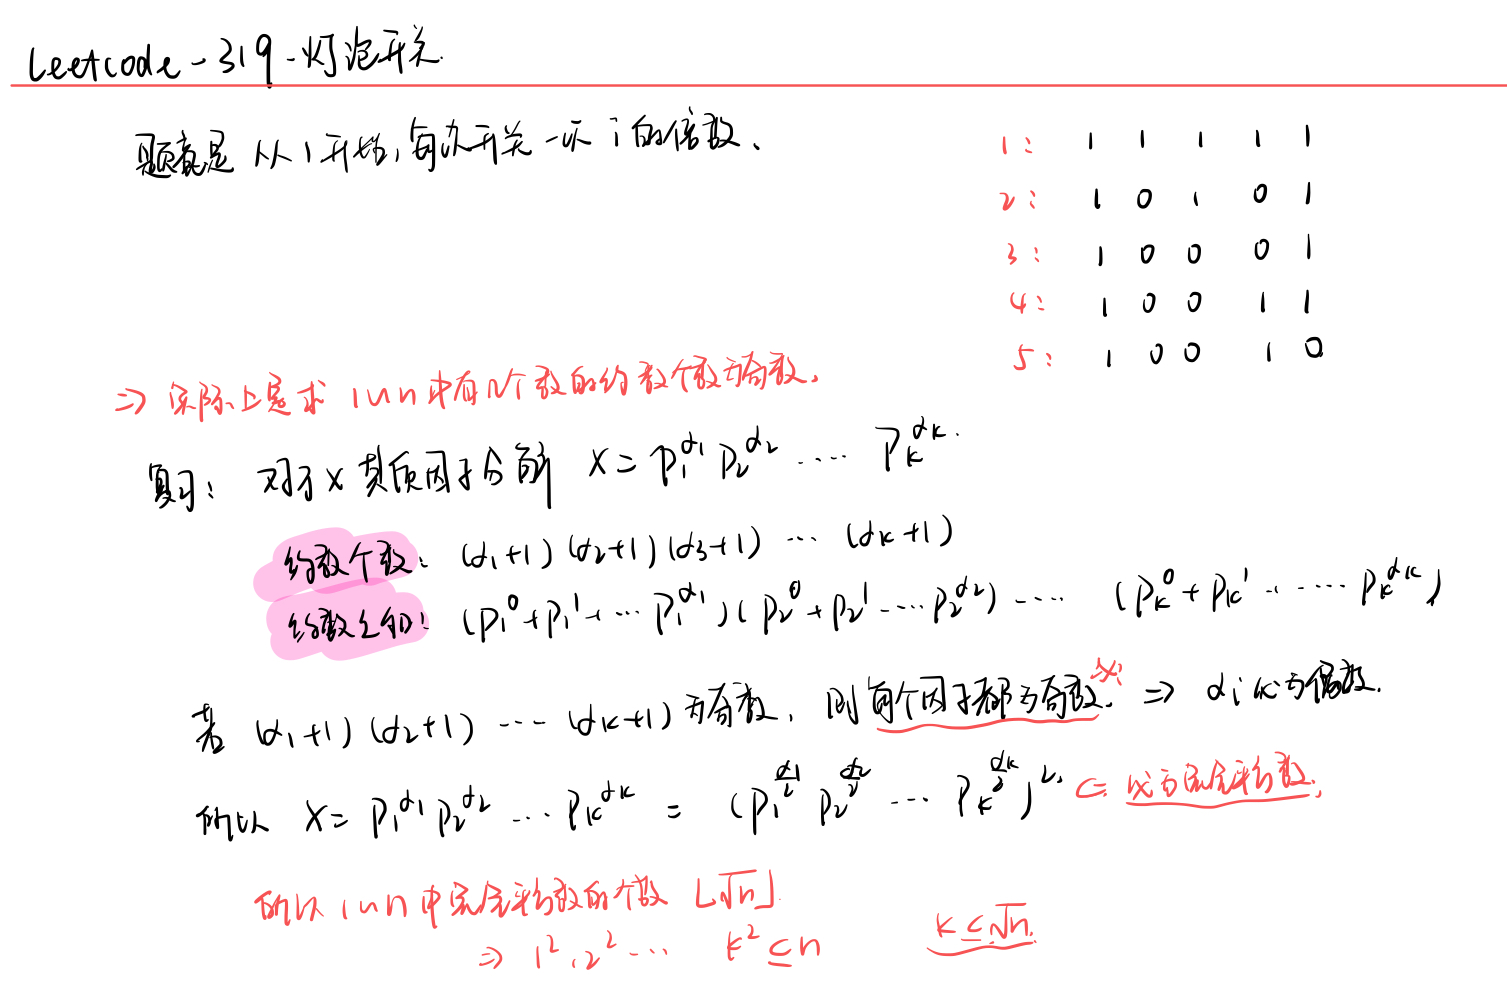 Leetcode-319-灯泡开关
题意是 从1开始,每次开关一下 i 的倍数、
1: 1 1 1 1 1
2: 1 0 1 0 1
3: 1 0 0 0 1
4: 1 0 0 1 1
5: 1 0 0 1 0
⇒ 实际上是求 1~n 中有几个数的约数个数为奇数。
复习: 对于x 其质因子分解 x = p₁^α₁ p₂^α₂ ···· pₖ^αₖ.
约数个数: (α₁+1)(α₂+1)(α₃+1) ··· (αₖ+1)
约数之和: (p₁⁰+p₁¹+···p₁^α₁)(p₂⁰+p₂¹····p₂^α₂) ····· (pₖ⁰+pₖ¹·····pₖ^αₖ)
若 (α₁+1)(α₂+1) ···· (αₖ+1) 为奇数, 则每个因子都为奇数. ⇒ αᵢ 必为偶数.
所以 x = p₁^α₁ p₂^α₂ ··· pₖ^αₖ = (p₁^(α₁/2) p₂^(α₂/2) ··· pₖ^(αₖ/2))². ⇐ 必为完全平方数.
所以 1~n 中完全平方数的个数 ⌊√n⌋
⇒ 1², 2² ··· k² ≤ n k ≤ √n.